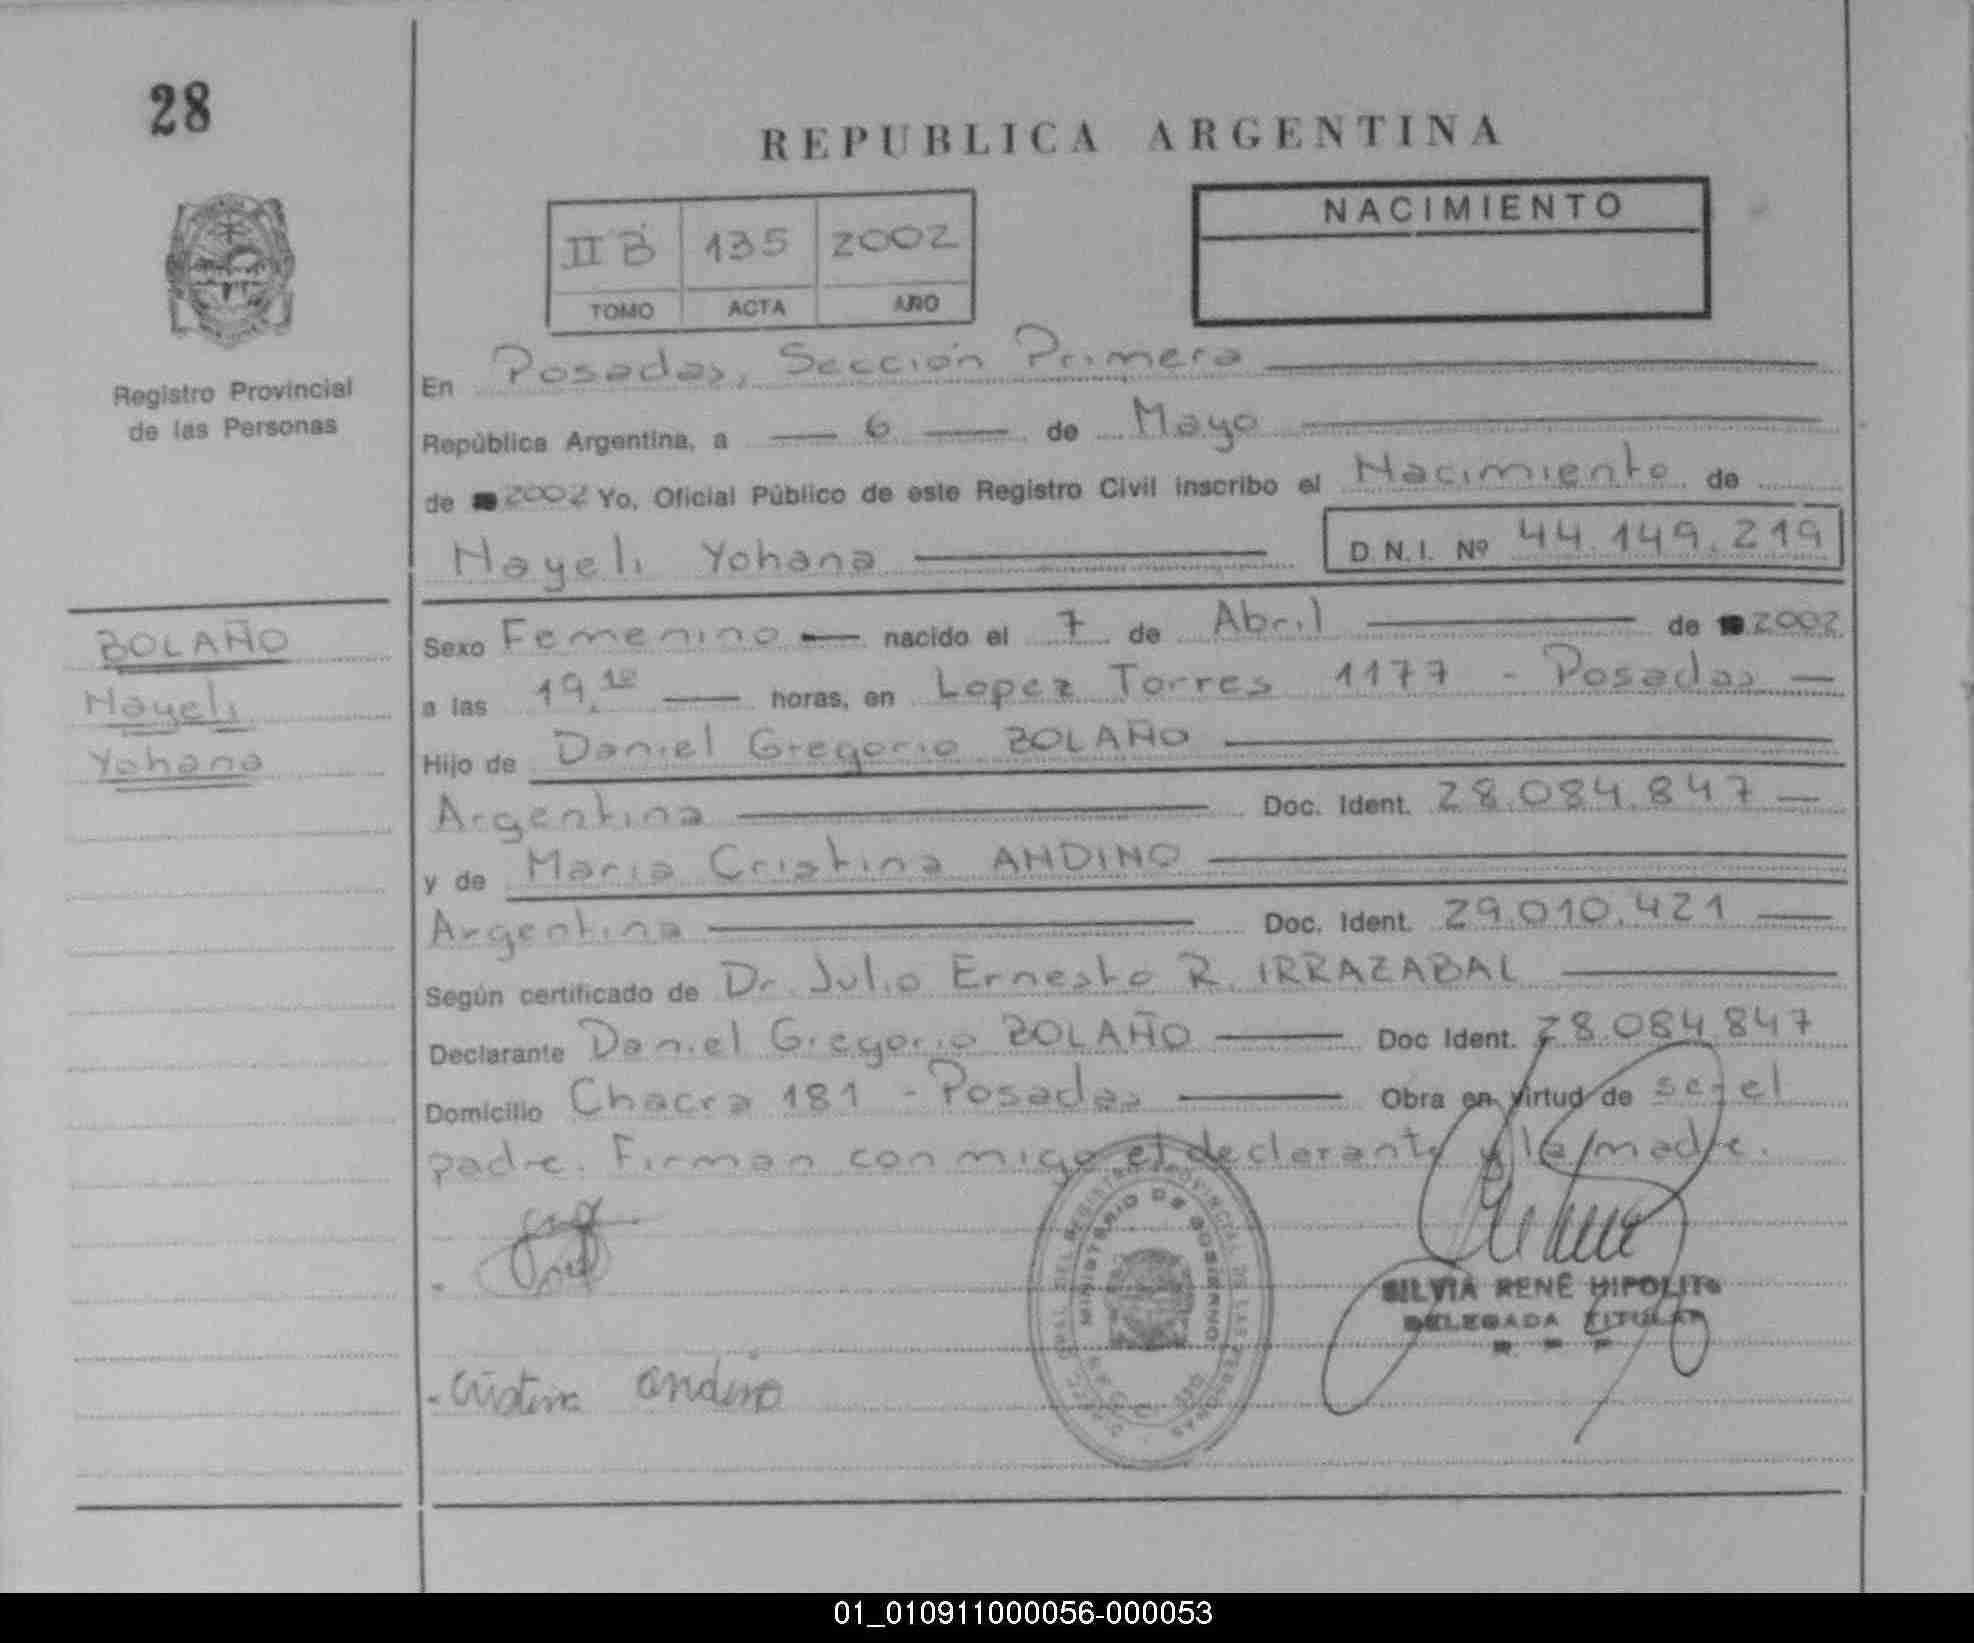 28
REPUBLICA ARGENTINA
II B 135 2002
TOMO ACTA AÑO
NACIMIENTO
Registro Provincial
de las Personas
En Posadas, Sección Primera
República Argentina, a 6 de Mayo
de 2002 Yo, Oficial Público de este Registro Civil inscribo el Nacimiento de
Nayeli Yohana D.N.I. Nº 44.149.219
BOLAÑO
Nayeli
Yohana
Sexo Femenino nacido el 7 de Abril de 2002
a las 19.10 horas, en Lopez Torres 1177 - Posadas
Hijo de Daniel Gregorio BOLAÑO
Argentina Doc. Ident. 28.084.847
y de Maria Cristina ANDINO
Argentina Doc. Ident. 29.010.421
Según certificado de Dr. Julio Ernesto R. IRRAZABAL
Declarante Daniel Gregorio BOLAÑO Doc Ident. 28.084.847
Domicilio Chacra 181 - Posadas Obra en virtud de ser el
padre. Firman conmigo el declarante y la madre.
MINISTERIO DE GOBIERNO
SILVIA RENÉ HIPOLITO
DELEGADA TITULAR
- Cristina andino
01_010911000056-000053